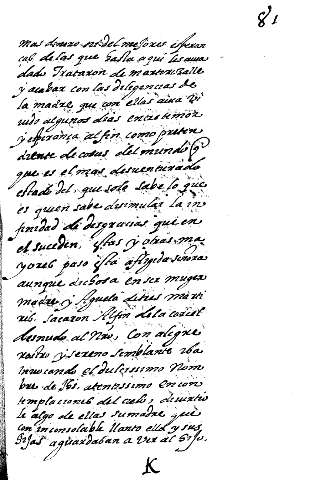 81
mas dinero ni del mejores esperan
cas de las que hasta aqui les avia
dado Trataron de martirizalle
y acabar con las diligencias de
la madre que con ellas avia vi
vido algunos dias entre temor
y esperança al fin como preten
diente de cosas del mundo q̃
que es el mas desventurado
estado del, que solo sabe lo que
es quien sabe disimular la in
finidad de desgracias que en
el suceden, estas y otras ma
yores paso esta afligida señora
aunque dichosa en ser muger
madre y Aguela destos marti
res. Sacaron Alfin de la carcel
desnudo al Niño, Con alegre
rostro y sereno semblante iba
invocando el dulcissimo Nom
bre de Jhs, atentissimo en con
templaciones del cielo, divirtio
le algo de ellas su madre que
con inconsolable llanto ella y sus
hijas aguardaban a ver al hijo,
K